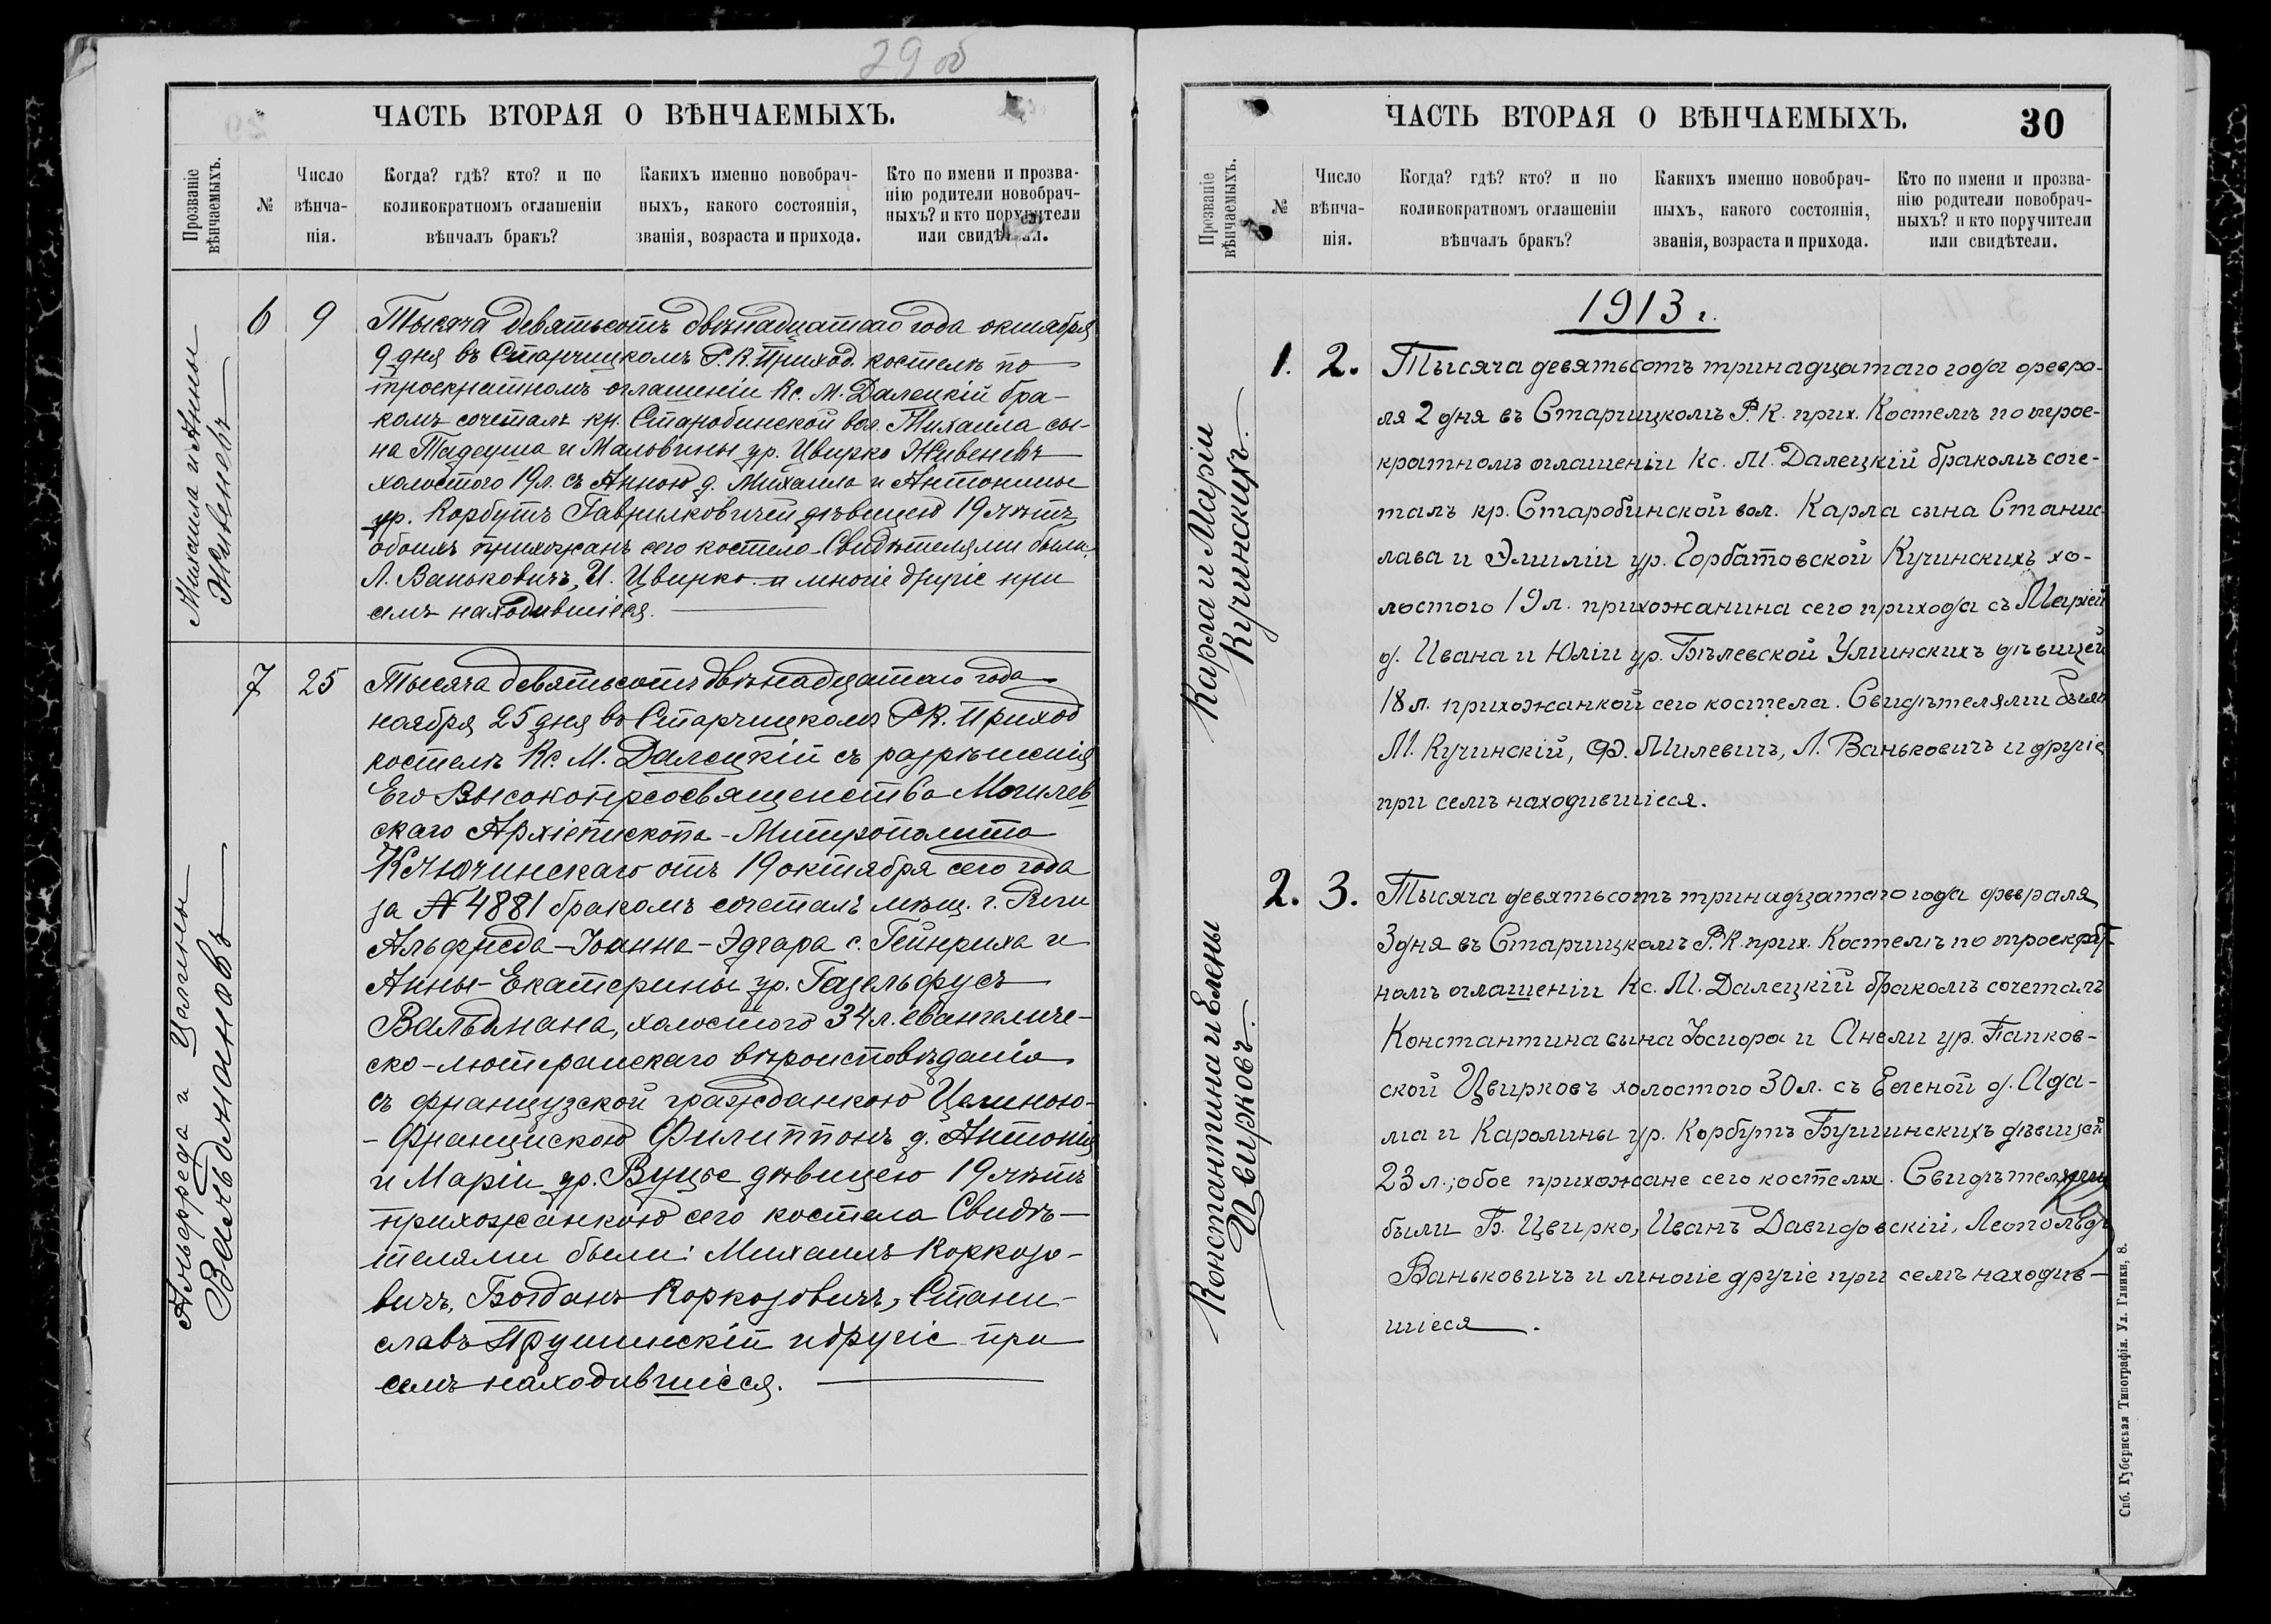 29 об
ЧАСТЬ ВТОРАЯ О ВѢНЧАЕМЫХЪ.
Прозваніе вѣнчаемыхъ.
№
Число вѣнча-нія.
Когда? гдѣ? кто? и по коликократномъ оглашеніи вѣнчалъ бракъ?
Какихъ именно новобрач-ныхъ, какого состоянія, званія, возраста и прихода.
Кто по имени и прозва-нію родители новобрач-ныхъ? и кто поручители или свидѣтели.
Михаила и Анны
Живеневъ
6 9
Тысяча девятьсотъ двѣнадцатаго года октября
9 дня въ Старчицкомъ Р.К. Приход. костелѣ по
троекратномъ оглашеніи Кс. М. Далецкій бра-
комъ сочеталъ кр. Старобинской вол. Михаила сы-
на Тадеуша и Мальвины ур. Цвирко Живеневъ
холостого 19 л. съ Анною д. Михаила и Антонины
ур. Корбутъ Гаврилковичей дѣвицею 19 лѣтъ
обоихъ прихожанъ сего костела. Свидѣтелями были:
Л. Ваньковичъ, И. Цвирко и многіе другіе при
семъ находившіеся.
Альфреда и Целины
Вальдмановъ
7 25
Тысяча девятьсотъ двѣнадцатаго года
ноября 25 дня въ Старчицкомъ Р.К. Приход
костелѣ Кс. М. Далецкій съ разрѣшенія
Его Высокопреосвященства Могилев
скаго Архіепископа-Митрополита
Ключинскаго отъ 19 октября сего года
за № 4881 бракомъ сочеталъ мѣщ. г. Риги
Альфреда-Іоанна-Эдгара с. Гейнриха и
Анны-Екатерины ур. Газельфусъ
Вальдмана, холостого 34 л. евангеличе-
ско-лютеранскаго вѣроисповѣданія
съ французской гражданкою Целиною-
-Францискою Филиппонъ д. Антонія
и Маріи ур. Вуцые дѣвицею 19 лѣтъ
прихожанкою сего костела Свидѣ-
телями были: Михаилъ Коркозо-
вичъ, Богданъ Коркозовичъ, Стани-
славъ Прушинскій и другіе при
семъ находившіеся.
ЧАСТЬ ВТОРАЯ О ВѢНЧАЕМЫХЪ.
30
Прозваніе вѣнчаемыхъ.
№
Число вѣнча-нія.
Когда? гдѣ? кто? и по коликократномъ оглашеніи вѣнчалъ бракъ?
Какихъ именно новобрач-ныхъ, какого состоянія, званія, возраста и прихода.
Кто по имени и прозва-нію родители новобрач-ныхъ? и кто поручители или свидѣтели.
1913 г.
Карла и Маріи
Кучинскихъ.
1. 2.
Тысяча девятьсотъ тринадцатаго года февра-
ля 2 дня въ Старчицкомъ Р.К. прих. Костелѣ по трое-
кратномъ оглашеніи Кс. М. Далецкій бракомъ соче-
талъ кр. Старобинской вол. Карла сына Станис-
лава и Эмиліи ур. Горбатовской Кучинскихъ хо-
лостого 19 л. прихожанина сего прихода съ Маріей
д. Ивана и Юліи ур. Бѣлевской Улинскихъ дѣвицей
18 л. прихожанкой сего костела. Свидѣтелями были
М. Кучинскій, Ф. Милевичъ, Л. Ваньковичъ и другіе
при семъ находившіеся.
Константина и Елены
Цвирковъ.
2. 3.
Тысяча девятьсотъ тринадцатаго года февраля
3 дня въ Старчицкомъ Р.К. прих. Костелѣ по троекрат-
номъ оглашеніи Кс. М. Далецкій бракомъ сочеталъ
Константина сына Іосифа и Анели ур. Папков-
ской Цвирковъ холостого 30 л. съ Еленой д. Ада-
ма и Каролины ур. Корбутъ Бушинскихъ дѣвицей
23 л.; обое прихожане сего костела. Свидѣтелями
были Б. Цвирко, Иванъ Давидовскій, Леопольдъ
Ваньковичъ и многіе другіе при семъ находив-
шіеся.
Спб. Губернская Типографія. Ул. Глинки, 8.